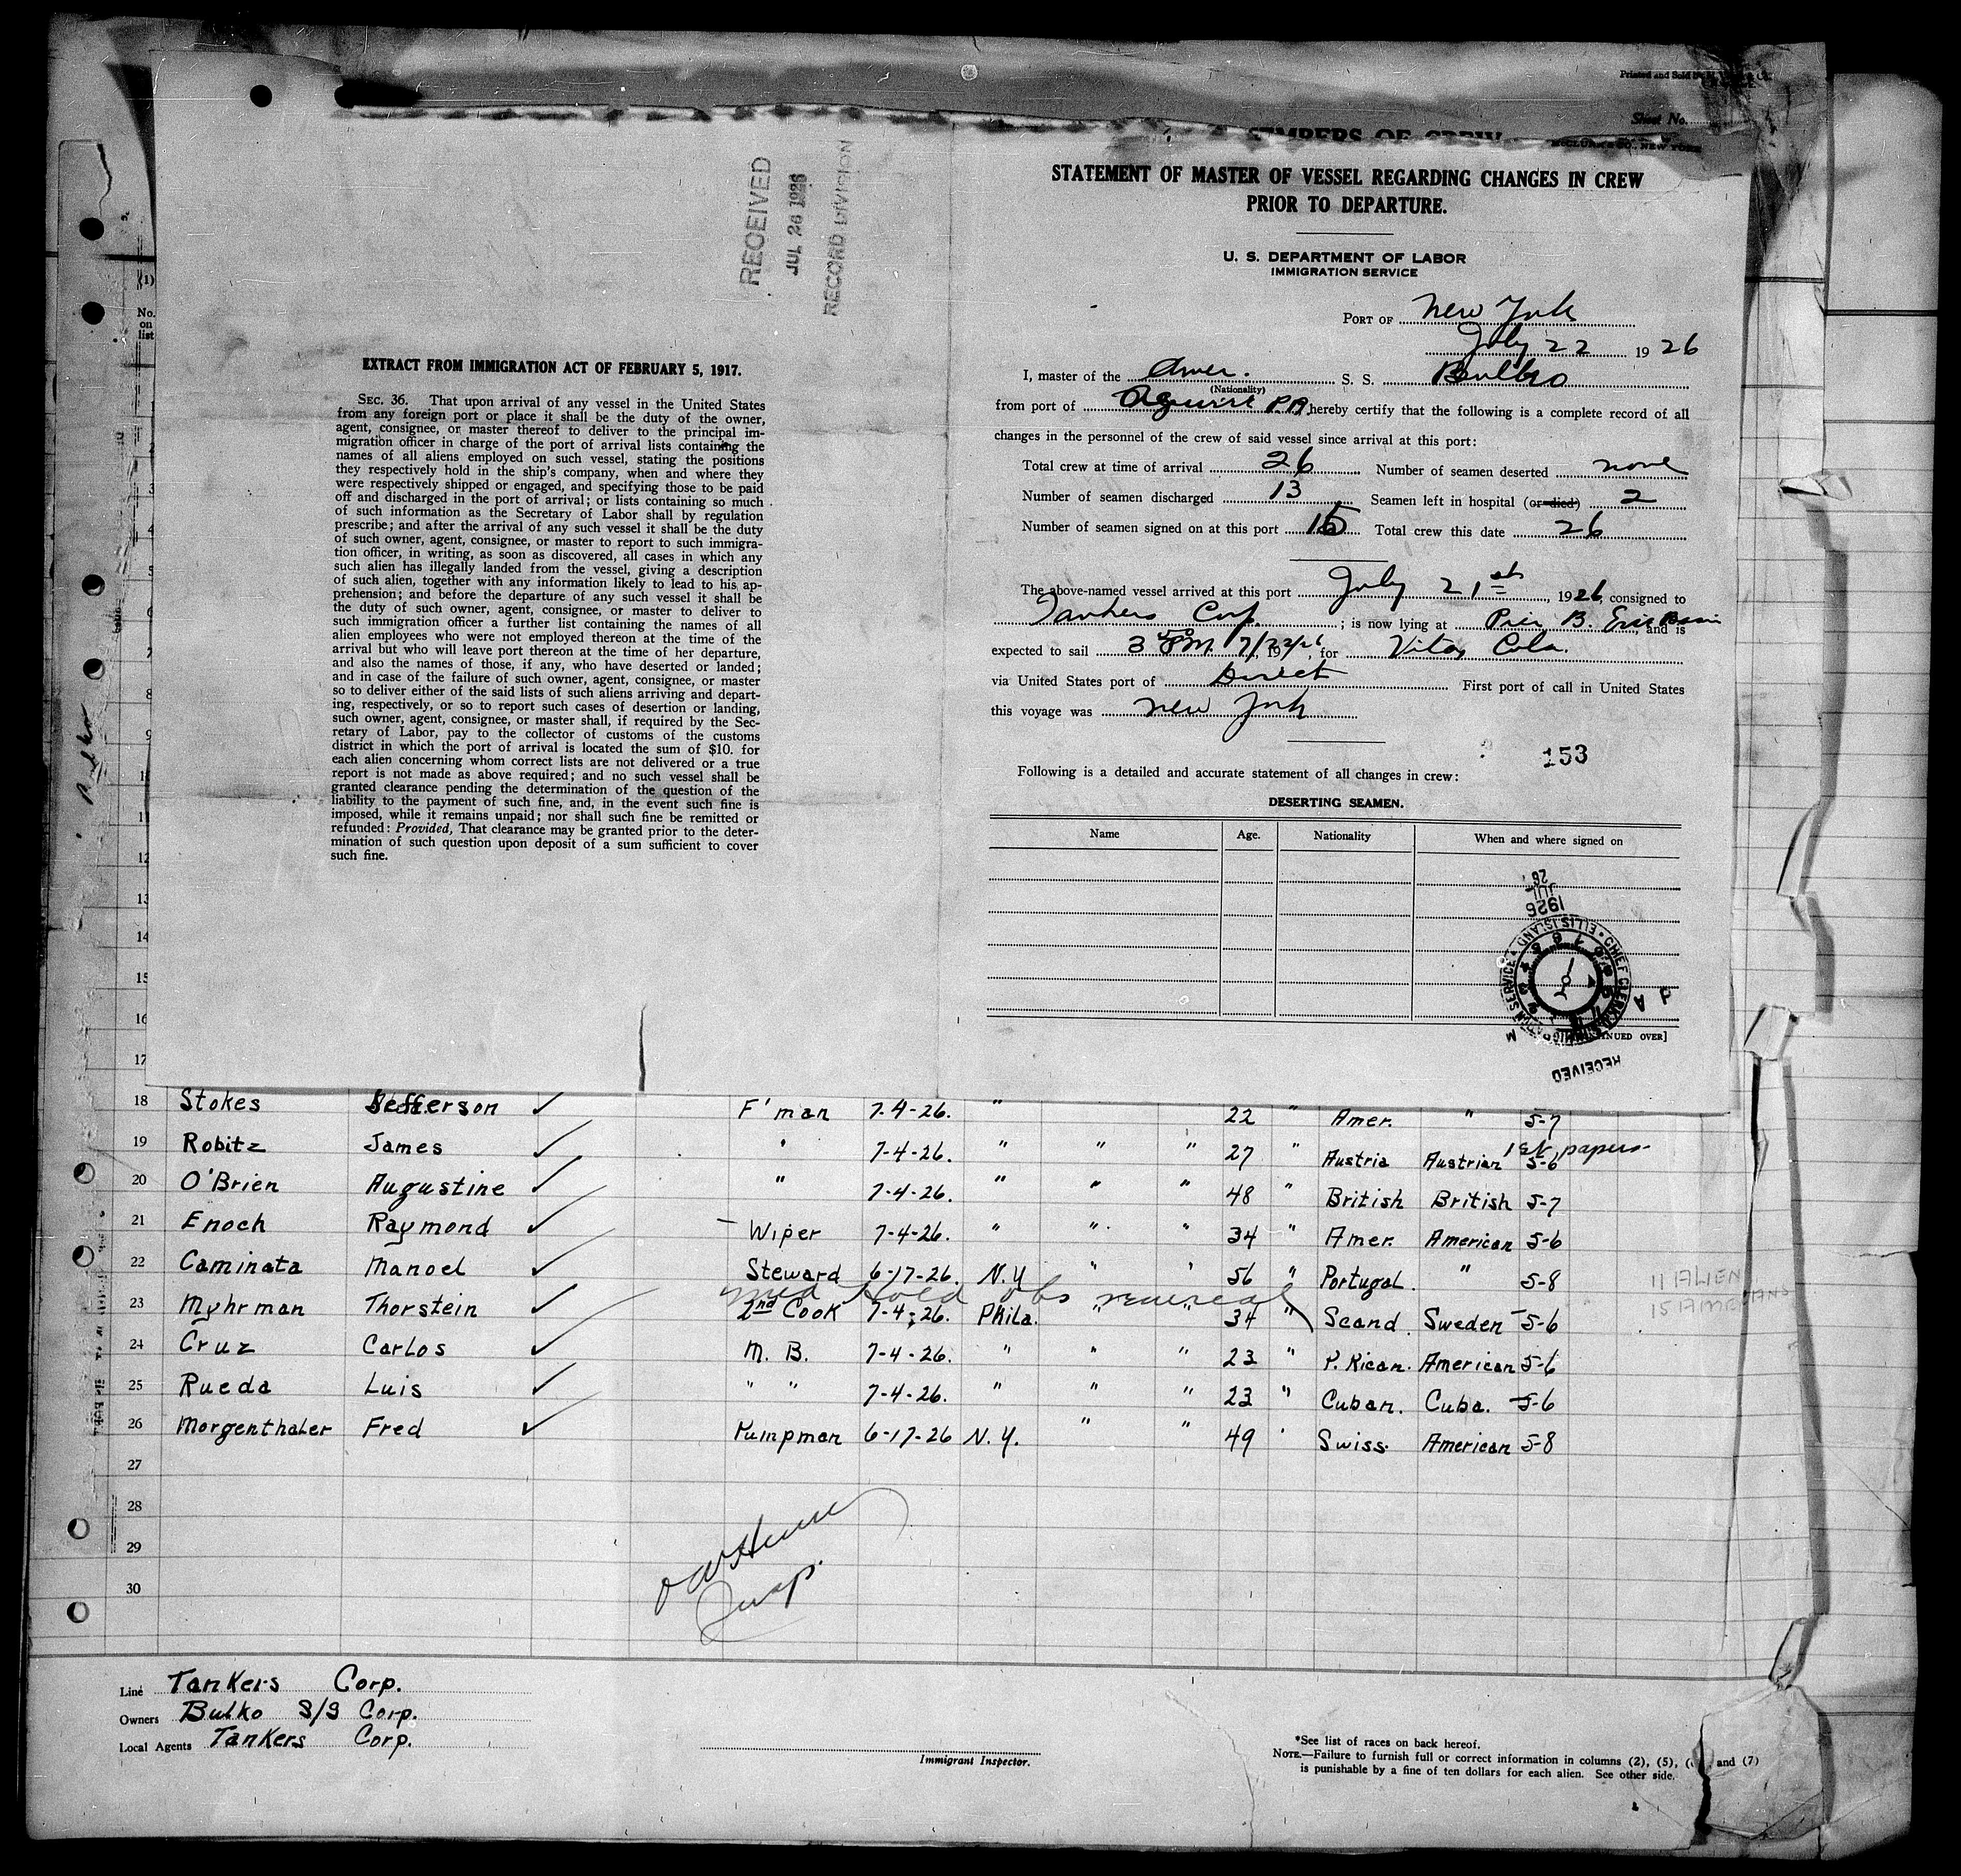 Printed and Sold by
Sheet No.
MEMBERS OF CREW
McCLURK & CO. NEW YORK
RECEIVED
JUL 26 1926
RECORD DIVISION
EXTRACT FROM IMMIGRATION ACT OF FEBRUARY 5, 1917.
SEC. 36. That upon arrival of any vessel in the United States
from any foreign port or place it shall be the duty of the owner,
agent, consignee, or master thereof to deliver to the principal im-
migration officer in charge of the port of arrival lists containing the
names of all aliens employed on such vessel, stating the positions
they respectively hold in the ship's company, when and where they
were respectively shipped or engaged, and specifying those to be paid
off and discharged in the port of arrival; or lists containing so much
of such information as the Secretary of Labor shall by regulation
prescribe; and after the arrival of any such vessel it shall be the duty
of such owner, agent, consignee, or master to report to such immigra-
tion officer, in writing, as soon as discovered, all cases in which any
such alien has illegally landed from the vessel, giving a description
of such alien, together with any information likely to lead to his ap-
prehension; and before the departure of any such vessel it shall be
the duty of such owner, agent, consignee, or master to deliver to
such immigration officer a further list containing the names of all
alien employees who were not employed thereon at the time of the
arrival but who will leave port thereon at the time of her departure,
and also the names of those, if any, who have deserted or landed;
and in case of the failure of such owner, agent, consignee, or master
so to deliver either of the said lists of such aliens arriving and depart-
ing, respectively, or so to report such cases of desertion or landing,
such owner, agent, consignee, or master shall, if required by the Sec-
retary of Labor, pay to the collector of customs of the customs
district in which the port of arrival is located the sum of $10. for
each alien concerning whom correct lists are not delivered or a true
report is not made as above required; and no such vessel shall be
granted clearance pending the determination of the question of the
liability to the payment of such fine, and, in the event such fine is
imposed, while it remains unpaid; nor shall such fine be remitted or
refunded: Provided, That clearance may be granted prior to the deter-
mination of such question upon deposit of a sum sufficient to cover
such fine.
STATEMENT OF MASTER OF VESSEL REGARDING CHANGES IN CREW
PRIOR TO DEPARTURE.
U. S. DEPARTMENT OF LABOR
IMMIGRATION SERVICE
PORT OF New York
July 22 1926
I, master of the Amer. S. S. Bulko
(Nationality)
from port of Aguirre P.R. hereby certify that the following is a complete record of all
changes in the personnel of the crew of said vessel since arrival at this port:
Total crew at time of arrival 26 Number of seamen deserted none
Number of seamen discharged 13 Seamen left in hospital (or died) 2
Number of seamen signed on at this port 15 Total crew this date 26
The above-named vessel arrived at this port July 21st, 1926, consigned to
Tankers Corp. ; is now lying at Pier B. Erie Basin, and is
expected to sail 3 PM 7/22/26, 19 , for Vita, Cuba.
via United States port of Direct First port of call in United States
this voyage was New York
153
Following is a detailed and accurate statement of all changes in crew:
DESERTING SEAMEN.
Name Age. Nationality When and where signed on
1926 JUL 26
CHIEF CLERK ELLIS ISLAND
RECEIVED
A P
[CONTINUED OVER]
(1)
No. on list
1
2
3
4
5
6
7
8
9
1
1
12
13
14
15
16
17
Bulko
18 Stokes Jefferson ✓ F'man 7-4-26. " 22 " Amer. " 5-7
19 Robitz James ✓ " 7-4-26. " " " 27 " Austria Austrian 5-6 1st papers
20 O'Brien Augustine ✓ " 7-4-26. " " " 48 " British British 5-7
21 Enoch Raymond ✓ Wiper 7-4-26. " " " 34 " Amer. American 5-6
22 Caminata Manoel ✓ Steward 6-17-26. N.Y " ' 56 " Portugal. " 5-8
med Hold obs venereal
23 Myhrman Thorstein ✓ 2nd Cook 7-4-26. Phila. " " 34 " Scand. Sweden 5-6
24 Cruz Carlos ✓ M. B. 7-4-26. " " " 23 " P. Rican. American 5-6
25 Rueda Luis ✓ " " 7-4-26. " " " 23 " Cuban. Cuba. 5-6
26 Morgenthaler Fred ✓ Pumpman 6-17-26 N.Y. " " 49 ' Swiss. American 5-8
11 ALIEN
15 AMERICANS
27
28
29
30
Insp.
Line Tankers Corp.
Owners Bulko S/S Corp.
Local Agents Tankers Corp.
Immigrant Inspector.
*See list of races on back hereof.
NOTE.—Failure to furnish full or correct information in columns (2), (5), ( and (7)
is punishable by a fine of ten dollars for each alien. See other side.